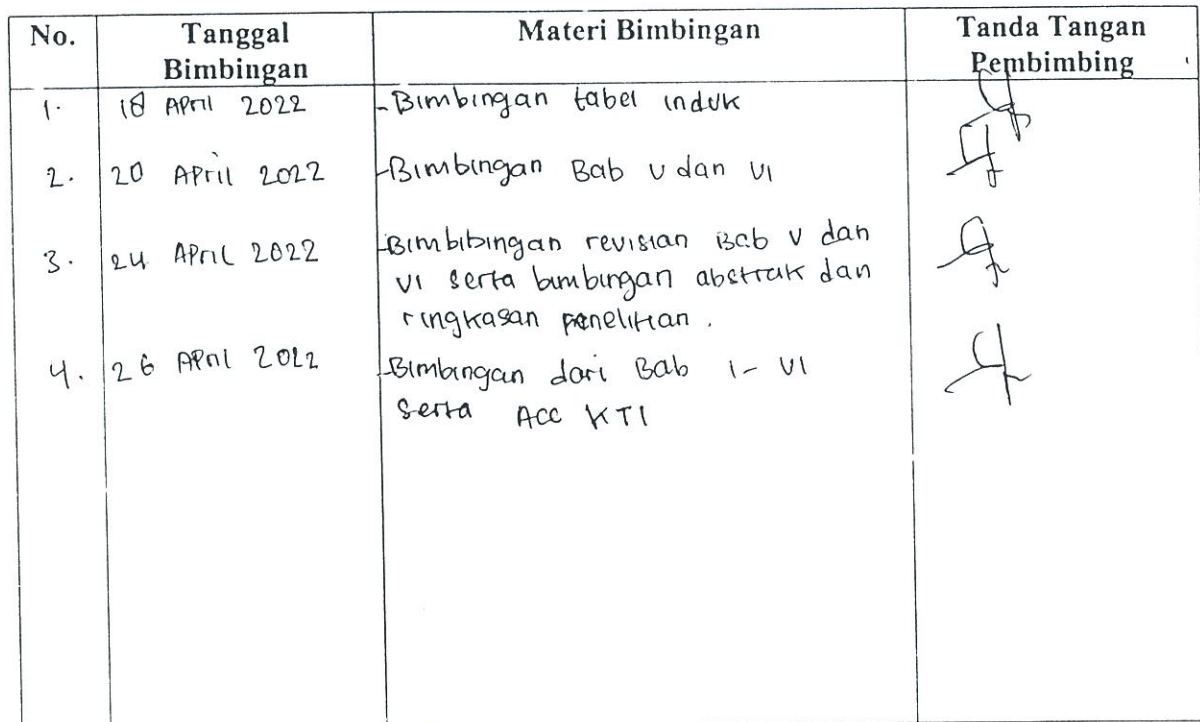 No. Tanggal Bimbingan Materi Bimbingan Tanda Tangan Pembimbing
1. 18 April 2022 - Bimbingan tabel induk
2. 20 April 2022 - Bimbingan Bab V dan VI
3. 24 April 2022 - Bimbibingan revisian Bab V dan
VI serta bimbingan abstrak dan
ringkasan penelitian.
4. 26 April 2022 - Bimbingan dari Bab I - VI
serta Acc KTI